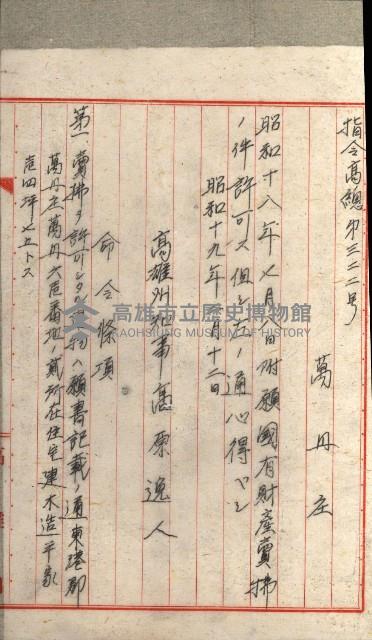 指令高總第三二二号
萬丹庄
昭和十八年七月六日附願國有財產賣拂
ノ件許可ス但シ左ノ通心得ヘシ
昭和十九年 月十二日
高雄州知事高原逸人
命令條項
第一 賣拂ヲ許可シタル物ハ願書記載ノ通東港郡
萬丹庄萬丹六 番地ノ貳所在住宅建木造平家
四坪七五トス
高雄市立歷史博物館
KAOHSIUNG MUSEUM OF HISTORY